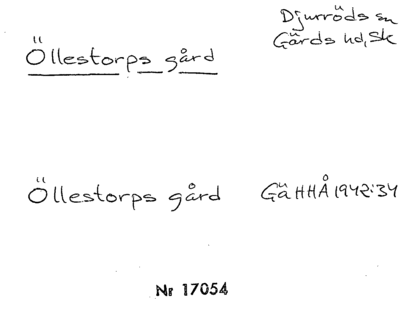 Öllestorps gård
Djurröds sn
Gärds hd, Sk
Öllestorps gård GäHHÅ 1942:34
Nr 17054